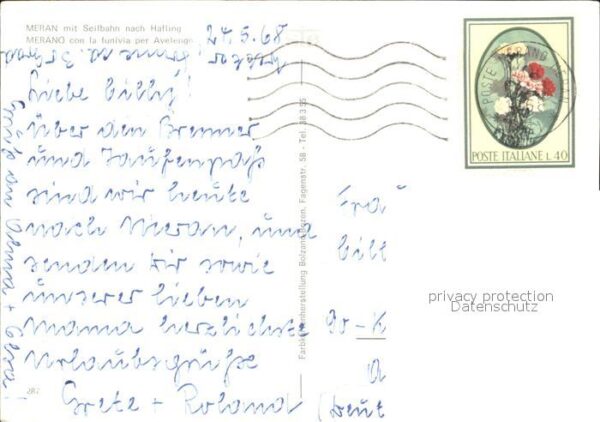 MERAN mit Seilbahn nach Hafling
MERANO con la funivia per Avelengo
24.5.68
Liebe Cilly!
Über den Brenner
und Jaufenpaß
sind wir heute
nach Meran, und
senden Dir sowie
unserer lieben
Mama herzlichste
Urlaubsgrüße
Grete + Roland
Grüße an
Farbkartenherstellung Bolzano-Bozen, Fagenstr. 58 - Tel. 38 3 55
Fra
Cill
90-
(Deut
287
POSTE ITALIANE L. 40
POSTE MERANO
privacy protection
Datenschutz